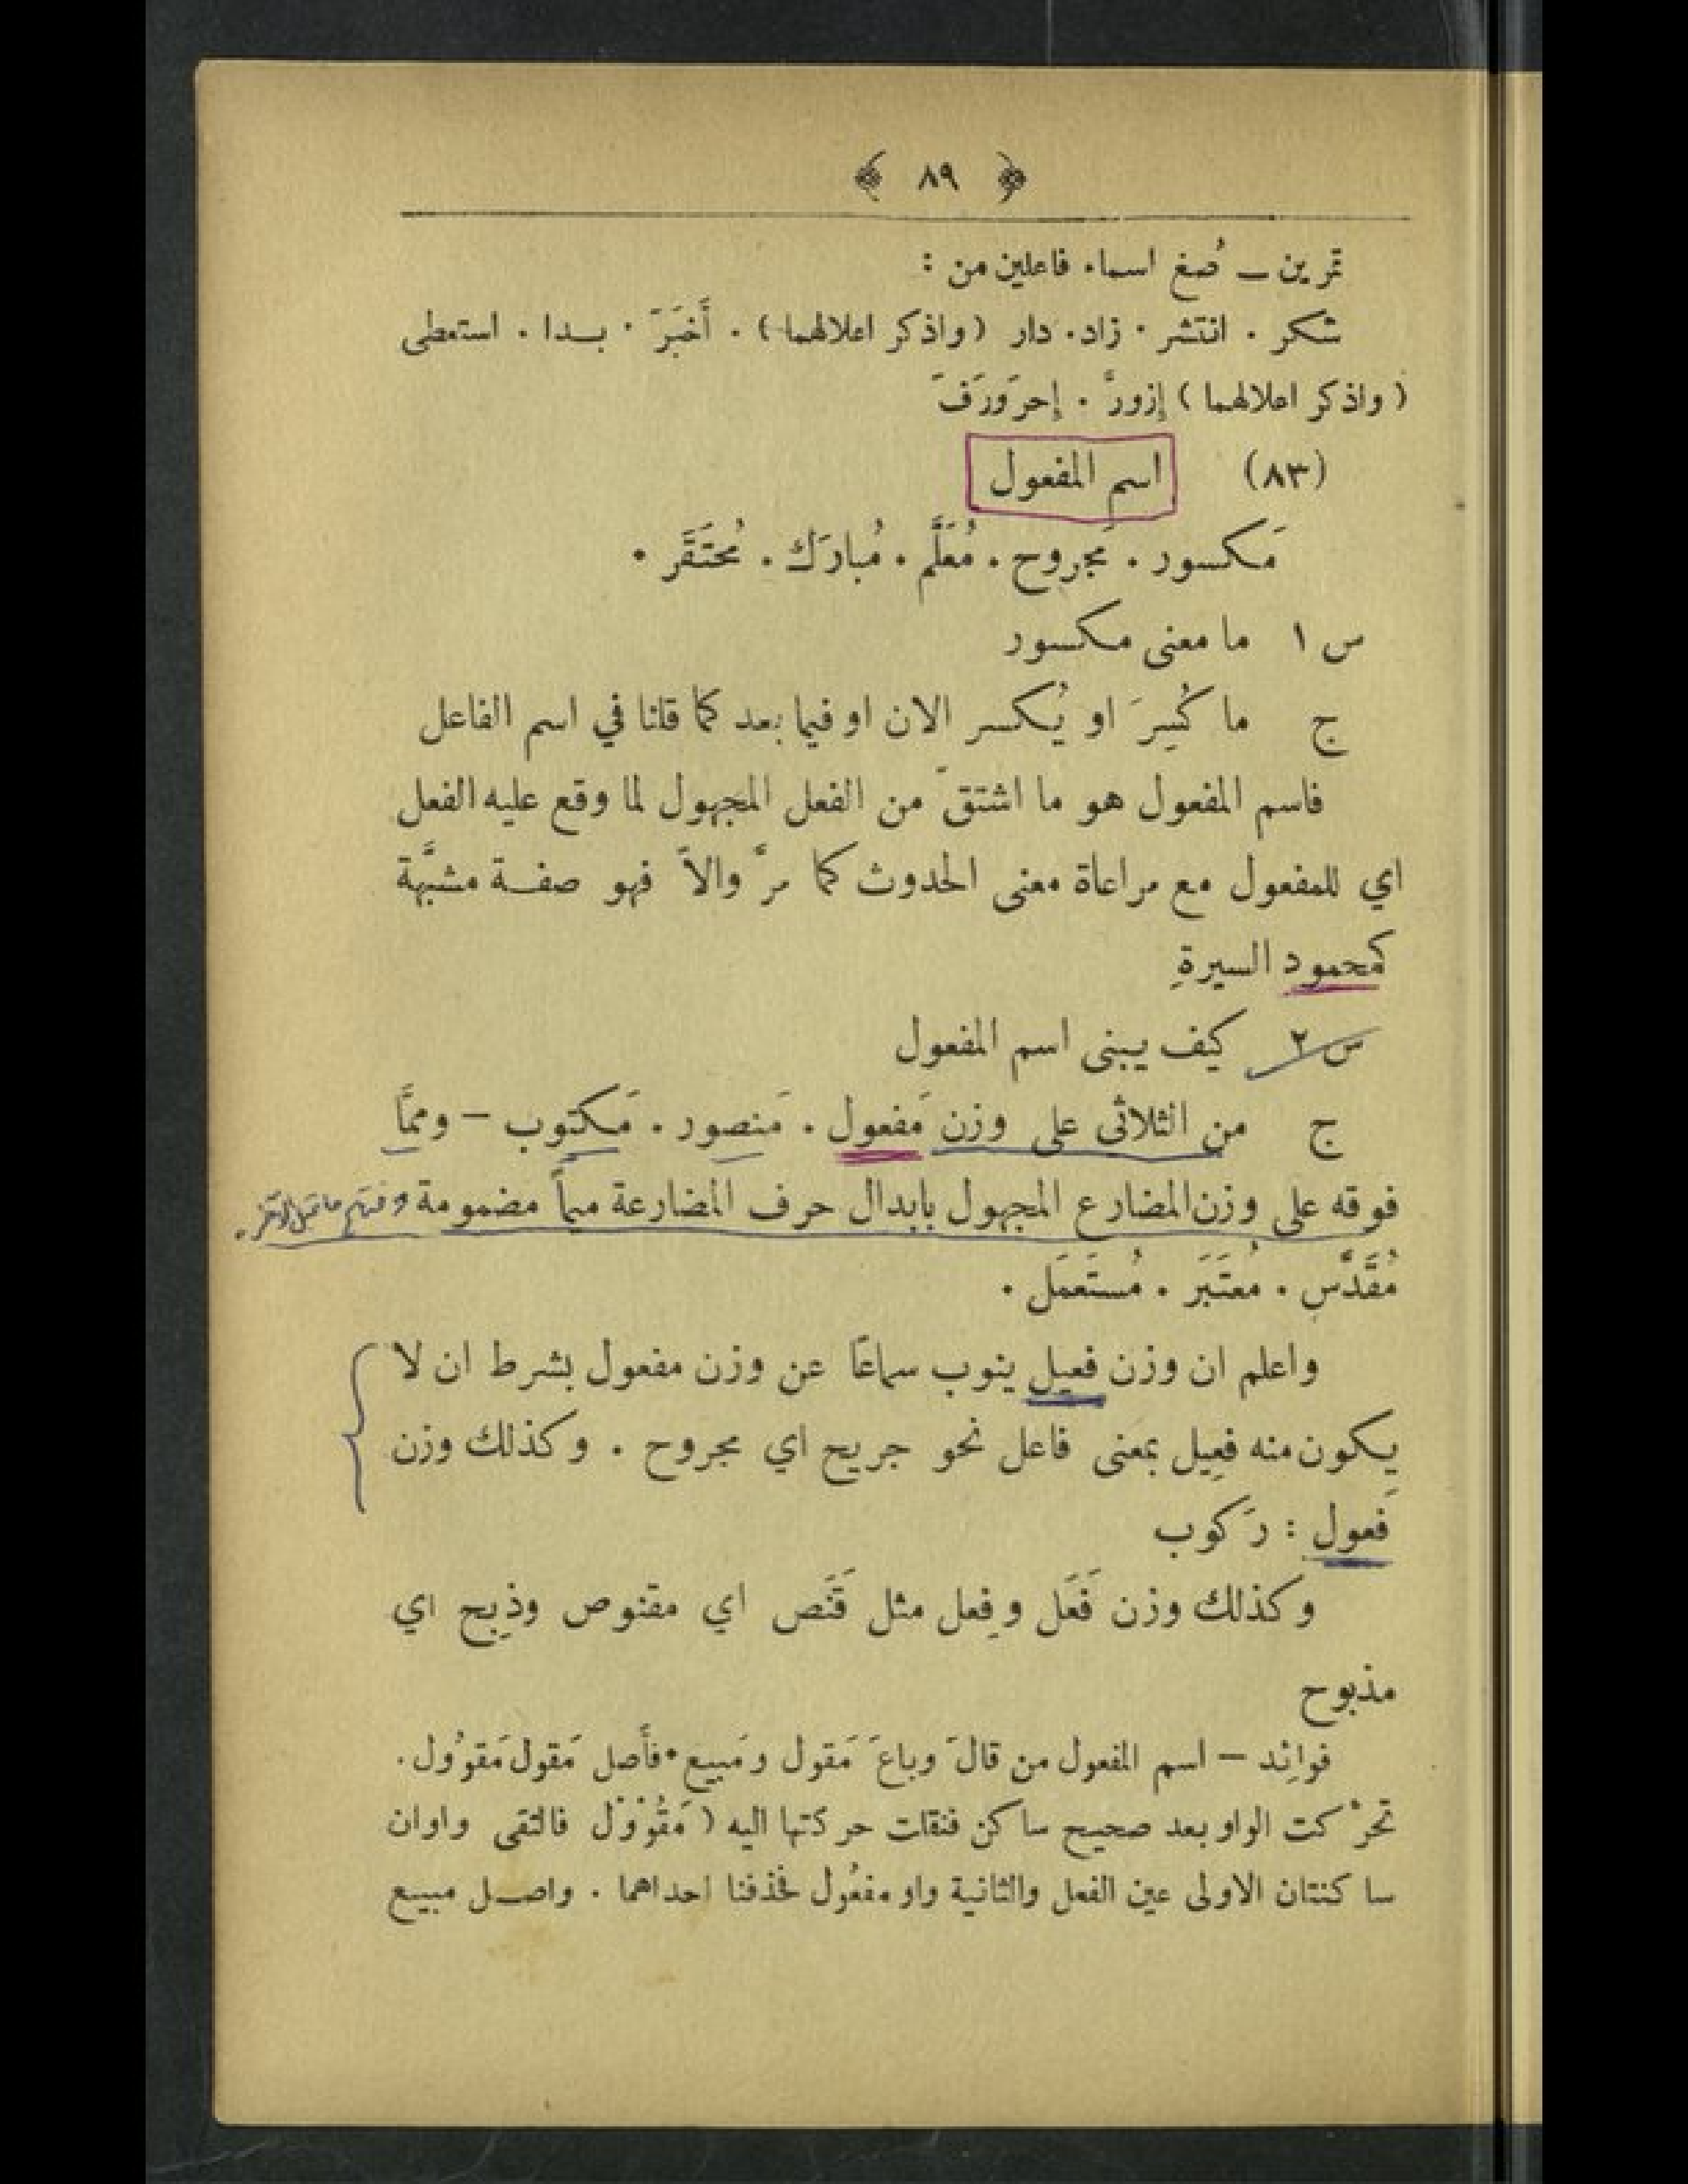 ﴿ ٨٩ ﴾
تمرين — صُغ اسماء فاعلين من :
شكر . انتشر . زاد . دار ( واذكر اعلالهما ) . أَخبَرَ . بدا . استعطى
( واذكر اعلالهما ) إزورَّ . إحرَورَفَ
(٨٣) اسم المفعول
مَكسور . مَجروح . مُعَلَّم . مُبارَك . مُحتَقَر .
س ١ ما معنى مكسور
ج ما كُسِرَ او يُكسر الان او فيما بعد كما قلنا في اسم الفاعل
فاسم المفعول هو ما اشتقَّ من الفعل المجهول لما وقع عليه الفعل
اي للمفعول مع مراعاة معنى الحدوث كما مرَّ والاَّ فهو صفة مشبَّهة
كمحمود السيرةِ
س ٢ كيف يبنى اسم المفعول
ج من الثلاثي على وزن مَفعول . مَنصور . مَكتوب — وممَّا
فوقه على وزن المضارع المجهول بابدال حرف المضارعة ميماً مضمومة وفتح ما قبل الآخر .
مُقَدَّس . مُعتَبَر . مُستَعمَل .
واعلم ان وزن فعيل ينوب سماعًا عن وزن مفعول بشرط ان لا
يكون منه فعِيل بمعنى فاعل نحو جريح اي مجروح . وكذلك وزن
فَعول : رَكوب
وكذلك وزن فَعَل وفِعل مثل قَنَص اي مقنوص وذِبح اي
مذبوح
فوائد — اسم المفعول من قالَ وباعَ مَقول ومَبيع . فأَصل مَقول مَقوُول .
تحرَّكت الواو بعد صحيح ساكن فنقلت حركتها اليه ( مَقُوْوْل فالتقى واوان
ساكنتان الاولى عين الفعل والثانية واو مفعُول فحذفنا احداهما . واصل مبيع